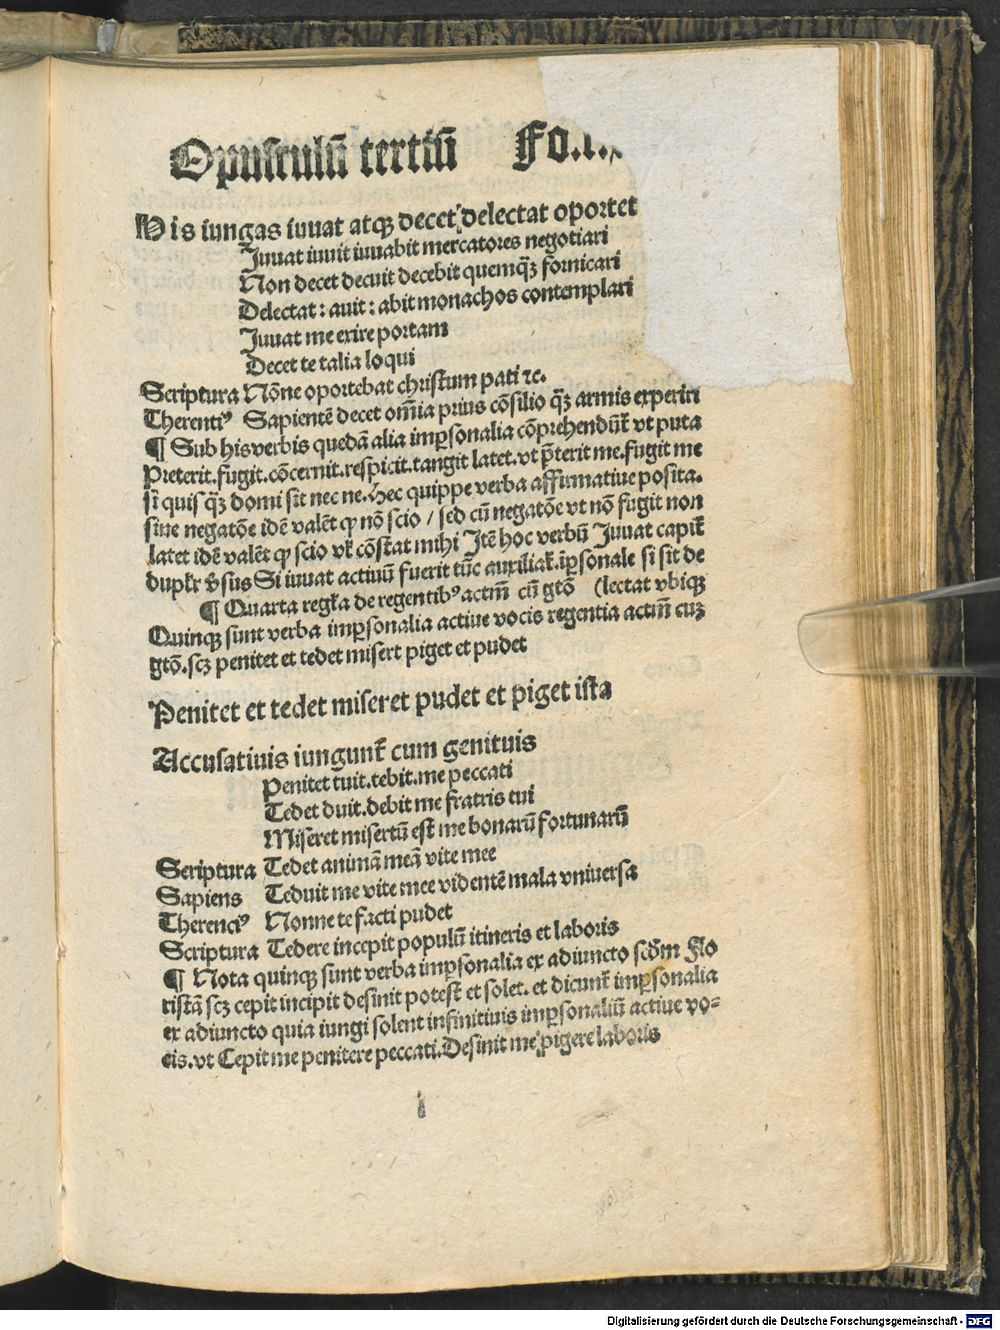 Opusculū tertiū Fo.
His iungas iuuat atqꝫ decet delectat oportet
Juuat iuuit iuuabit mercatores negotiari
Non decet decuit decebit quemqꝫ fornicari
Delectat: auit: abit monachos contemplari
Juuat me exire portam
Decet te talia loqui
Scriptura Nōne oportebat christum pati ⁊c.
Therentiꝰ Sapientē decet om̄ia prius cōsilio qꝫ armis experiri
¶ Sub his verbis quedā alia imꝑsonalia cōprehendūt᷑ vt puta
Preterit.fugit.cōcernit.respicit.tangit latet.vt p̄terit me.fugit me
si quis qꝫ domi sit nec ne.Hec quippe verba affirmatiue posita.
sine negatōe idē valēt ꝙ nō scio / sed cū negatōe vt nō fugit non
latet idē valēt ꝙ scio vl̕ cōstat mihi Itē hoc verbū Juuat capit᷑
duplr̕ v̕sus Si iuuat actiuū fuerit tūc auxiliat᷑.īꝑsonale si sit de
¶ Quarta regl̕a de regentibꝰ actm̄ cū gtō (lectat vbiqꝫ
Quinqꝫ sunt verba imꝑsonalia actiue vocis regentia actm̄ cuꝫ
gtō.scꝫ penitet et tedet misert piget et pudet
Penitet et tedet miseret pudet et piget ista
Accusatiuis iungunt᷑ cum genituis
Penitet tuit.tebit.me peccati
Tedet duit.debit me fratris tui
Miseret misertū est me bonarū fortunarū
Scriptura Tedet animā meā vite mee
Sapiens Teduit me vite mee videntē mala vniuersa
Therenciꝰ Nonne te facti pudet
Scriptura Tedere incepit populū itineris et laboris
¶ Nota quinqꝫ sunt verba imꝑsonalia ex adiuncto scd̄m Flo
ristā scꝫ cepit incipit desinit potest et solet. et dicunt᷑ imꝑsonalia
ex adiuncto quia iungi solent infinitiuis imꝑsonaliū actiue vo⸗
cis.vt Cepit me penitere peccati.Desinit me pigere laboris
Digitalisierung gefördert durch die Deutsche Forschungsgemeinschaft - DFG